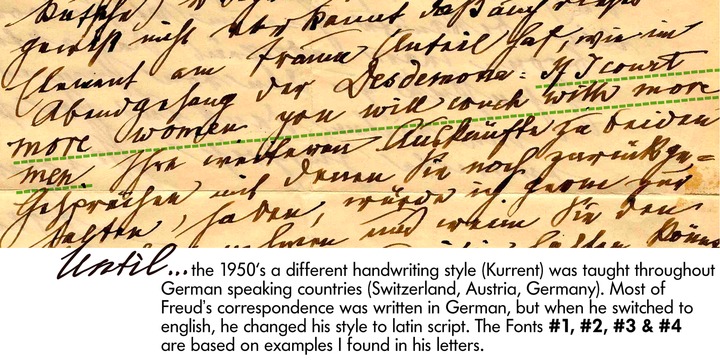 gewiß nicht daß auch
Element am Traume Anteil hat, wie im
Abendgesang der Desdemona: If I court
more women you will couch with more
men. Ihre weiteren Auskünfte zu beiden
Gesprächen mit denen Sie noch zurückge=
halten haben, würde ich gerne zur
nehmen und wenn Sie den
Until...the 1950's a different handwriting style (Kurrent) was taught throughout
German speaking countries (Switzerland, Austria, Germany). Most of
Freud's correspondence was written in German, but when he switched to
english, he changed his style to latin script. The Fonts #1, #2, #3 & #4
are based on examples I found in his letters.